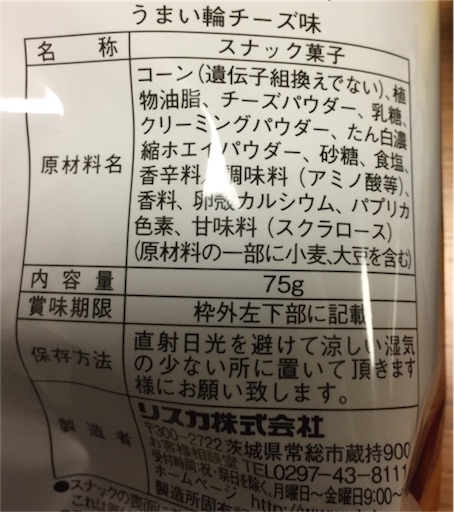 うまい輪チーズ味
名称 スナック菓子
原材料名
コーン(遺伝子組換えでない)、植
物油脂、チーズパウダー、乳糖、
クリーミングパウダー、たん白濃
縮ホエイパウダー、砂糖、食塩、
香辛料、調味料(アミノ酸等)、
香料、卵殻カルシウム、パプリカ
色素、甘味料(スクラロース)
(原材料の一部に小麦、大豆を含む)
内容量 75g
賞味期限 枠外左下部に記載
保存方法
直射日光を避けて涼しい湿気
の少ない所に置いて頂きます
様にお願い致します。
製造者
リスカ株式会社
〒300-2722 茨城県常総市蔵持900
お客様相談室 TEL0297-43-8111
受付時間:祝・祭日を除く、月曜日〜金曜日9:00〜
ホームページ http://www
●スナックの表面に
これは
製造所固有